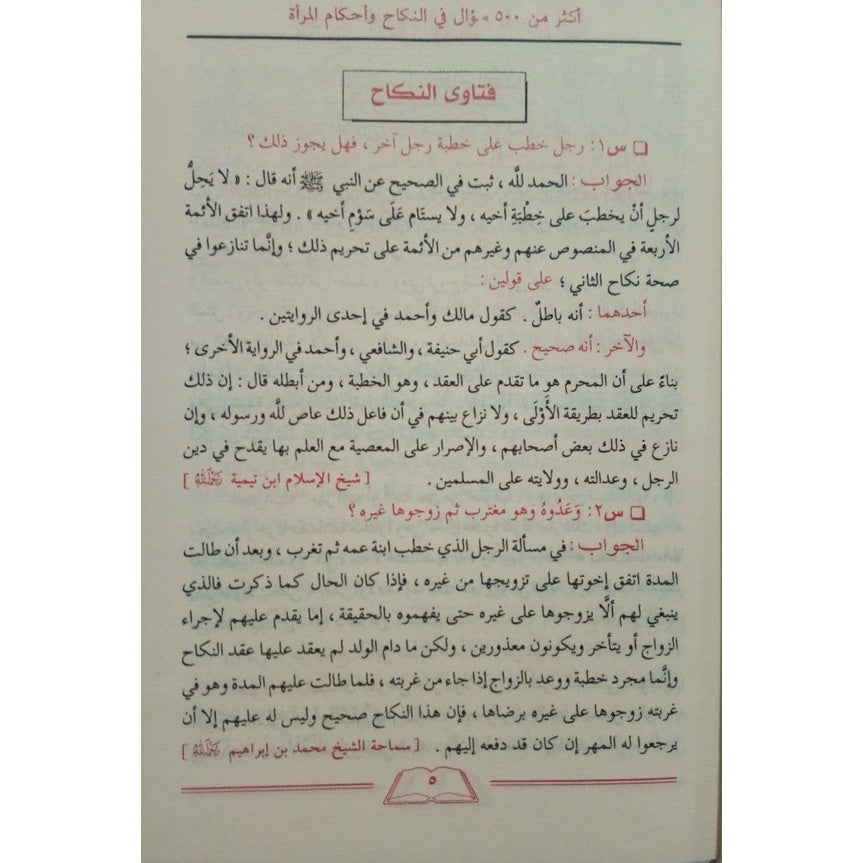 أكثر من ٥٠٠ سؤال في النكاح وأحكام المرأة
فتاوى النكاح
❑ س١: رجل خطب على خطبة رجل آخر ، فهل يجوز ذلك ؟
الجواب : الحمد للَّه ، ثبت في الصحيح عن النبي ﷺ أنه قال : « لا يَحِلُّ
لرجلٍ أنْ يخطبَ على خِطْبَةِ أخيه ، ولا يستَام عَلَى سَوْمِ أخيه » . ولهذا اتفق الأئمة
الأربعة في المنصوص عنهم وغيرهم من الأئمة على تحريم ذلك ؛ وإنَّما تنازعوا في
صحة نكاح الثاني ؛ على قولين :
أحدهما : أنه باطلٌ . كقول مالك وأحمد في إحدى الروايتين .
والآخر : أنه صحيح . كقول أبي حنيفة ، والشافعي ، وأحمد في الرواية الأخرى ؛
بناءً على أن المحرم هو ما تقدم على العقد ، وهو الخطبة ، ومن أبطله قال : إن ذلك
تحريم للعقد بطريقة الأَوْلَى ، ولا نزاع بينهم في أن فاعل ذلك عاص للَّه ورسوله ، وإن
نازع في ذلك بعض أصحابهم ، والإصرار على المعصية مع العلم بها يقدح في دين
الرجل ، وعدالته ، وولايته على المسلمين . [ شيخ الإسلام ابن تيمية رَحِمَهُ اللَّهُ ]
❑ س٢: وَعَدُوهُ وهو مغترب ثم زوجوها غيره ؟
الجواب : في مسألة الرجل الذي خطب ابنة عمه ثم تغرب ، وبعد أن طالت
المدة اتفق إخوتها على تزويجها من غيره ، فإذا كان الحال كما ذكرت فالذي
ينبغي لهم ألَّا يزوجوها على غيره حتى يفهموه بالحقيقة ، إما يقدم عليهم لإجراء
الزواج أو يتأخر ويكونون معذورين ، ولكن ما دام الولد لم يعقد عليها عقد النكاح
وإنَّما مجرد خطبة ووعد بالزواج إذا جاء من غربته ، فلما طالت عليهم المدة وهو في
غربته زوجوها على غيره برضاها ، فإن هذا النكاح صحيح وليس له عليهم إلا أن
يرجعوا له المهر إن كان قد دفعه إليهم . [ سماحة الشيخ محمد بن إبراهيم رَحِمَهُ اللَّهُ ]
٥